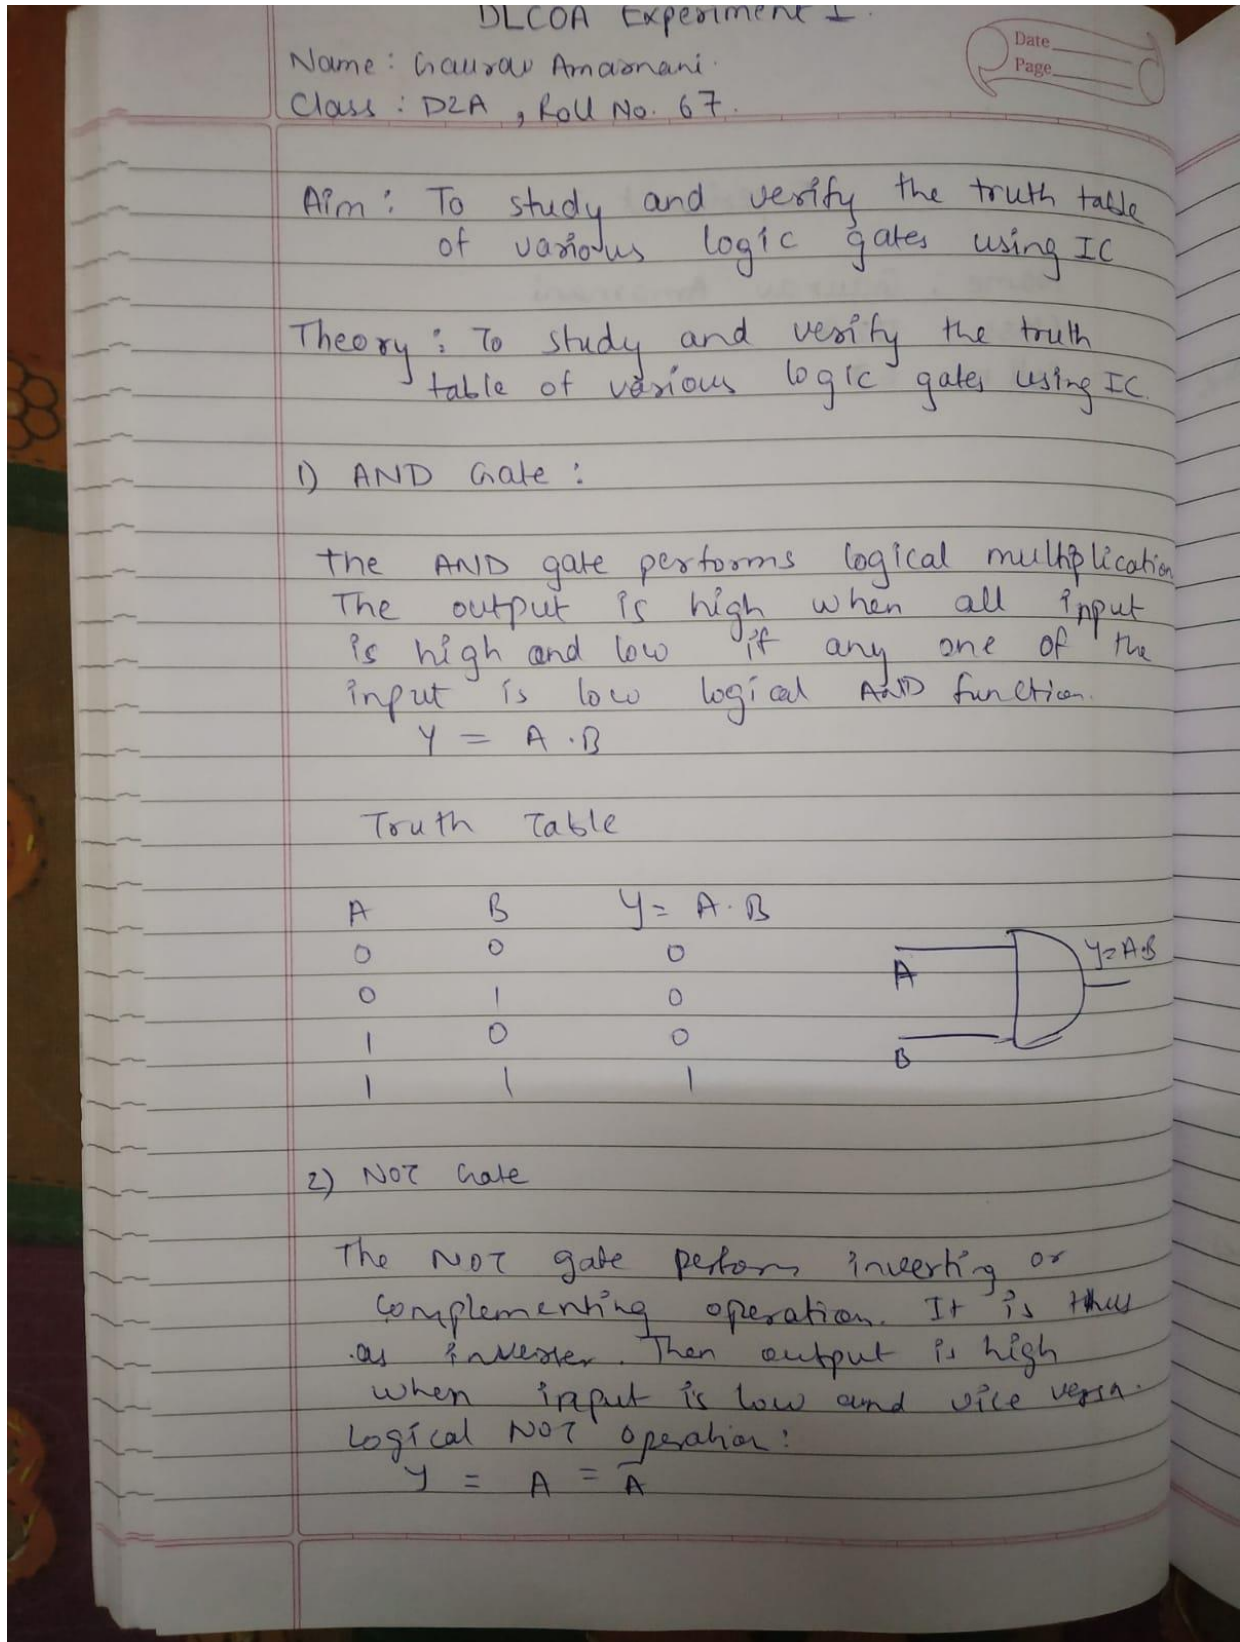 DLCOA Experiment 1.
Date
Page
Name : Gaurav Amarnani.
Class : D2A , Roll No. 67.
Aim : To study and verify the truth table
of various logic gates using IC
Theory : To study and verify the truth
table of various logic gates using IC.
1) AND Gate :
The AND gate performs logical multiplication
The output is high when all input
is high and low if any one of the
input is low logical AND function.
Y = A . B
Truth Table
A B Y = A . B
0 0 0
0 1 0
1 0 0
1 1 1
Y=A.B
A
B
2) NOT Gate
The NOT gate perform inverting or
complementing operation. It is thus
as inverter. Then output is high
when input is low and vice versa.
Logical NOT operation :
Y = A = A̅